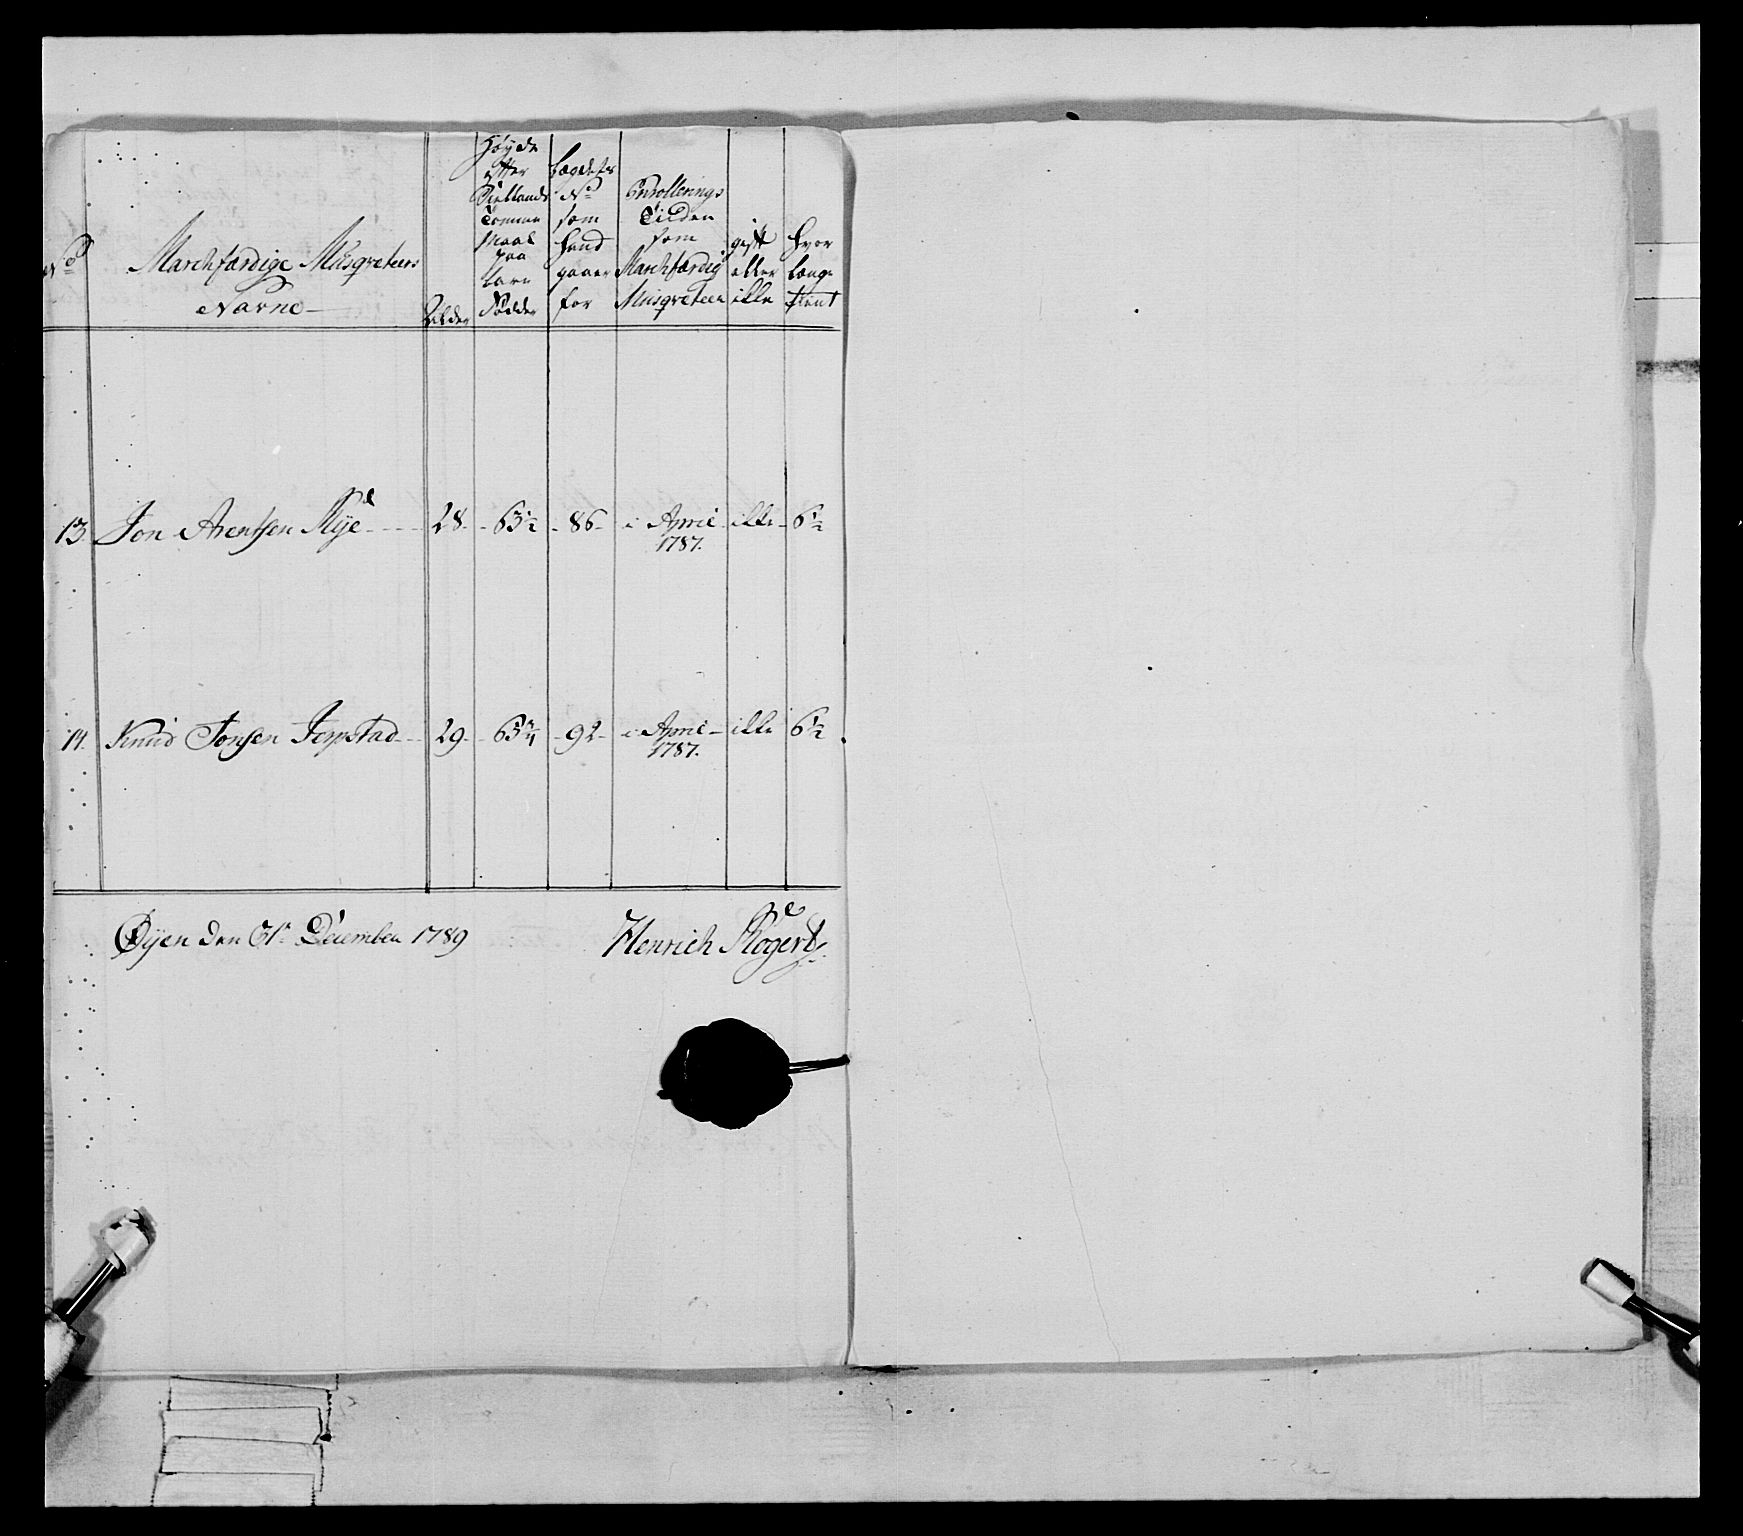 No
Marchfærdige Musqveteers
Navne
Alder
Høyde
efter
Siellands
Tomme
Maal
paa
bare
Fødder
Lægdets
No
som
hand
gaaer
for
Enrollerings
Tiiden
som
Marchfærdig
Musqveteer
gift
eller
ikke
Hvor
længe
tient
13. Jon Arentsen Mye 28. 63½ 86 i April ikke 6½
1787.
14. Knud Jonsen Jerpstad 29. 63¾ 92 i April ikke 6½
1787.
Øyen den 31te December 1789 Henrich